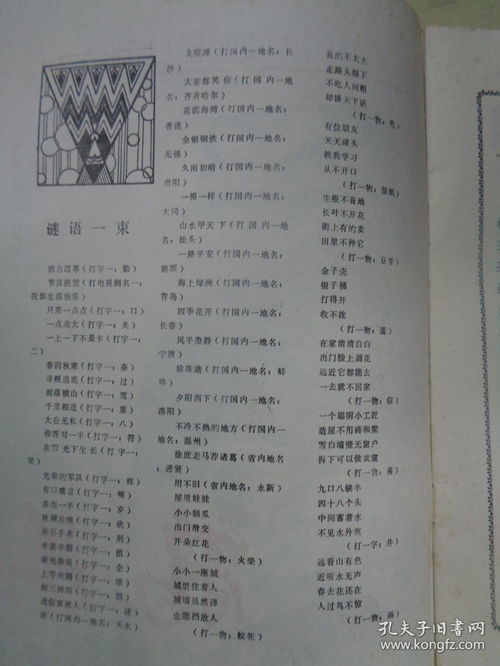 谜语一束
致力改革（打字一：勤）
节日祝贺（打电视剧名一：
祝你生活快乐）
只差一点点（打字一：口）
一点点大（打字一：夹）
一上一下不是卡（打字一：
二）
春阴秋寒（打字一：秦）
寻根追底（打字一：过）
雨落横山（打字一：雪）
千里相逢（打字一：重）
太公无私（打字一：八）
你答对一半（打字一：符）
光下生长（打字一：
星）
光荣的军队（打字一：辉）
有口难言（打字一：哑）
多出一半（打字一：岁）
（打字一：秋）
（打字一：刑）
（打字一：值）
（打字一：企）
（打字一：维）
（打字一：谜）
（打国内一地名：天水）
戈壁滩（打国内一地名：长
沙）
大家都笑你（打国内一地
名：齐齐哈尔）
花滨海湾（打国内一地名：
香港）
金银铜铁（打国内一地名：
无锡）
久雨初晴（打国内一地名：
贵阳）
一模一样（打国内一地名：
大同）
山水甲天下（打国内一地
名：汕头）
一路平安（打国内一地名：
旅顺）
海上绿洲（打国内一地名：
青岛）
四季花开（打国内一地名：
长春）
风平浪静（打国内一地名：
宁波）
珍珠港（打国内一地名：蚌
埠）
夕阳西下（打国内一地名：
洛阳）
不冷不热的地方（打国内一
地名：温州）
徐庶走马荐诸葛（省内地名
：进贤）
用不旧（省内地名：永新）
屋里娃娃
小小脑瓜
出门滑交
开朵红花
（打一物：火柴）
小小一座城
城里住着人
城墙虽然薄
也能挡敌人
（打一物：蚊帐）
走路头朝下
不吃人间粮
却操天下话
有位朋友
天天碰头
教我学习
从不开口
（打一物：报纸）
生根不着地
长叶不开花
街上有的卖
田里不种它
（打一物：豆芽）
金子壳
银子桶
打得开
收不拢
（打一物：蛋）
在家清清白白
出门脸上涌花
远近它都能去
一去就不回家
（打一物：信）
一个聪明小工匠
造屋不用砖和梁
雪白墙壁无窗户
拆下可以做衣裳
九口八缺半
四十八个头
中间蓄着水
不见水外流
（打一字：井）
远看山有色
近听水无声
春去花还在
人过鸟不惊
（打一物：画）
孔夫子旧书网
www.kongfz.com